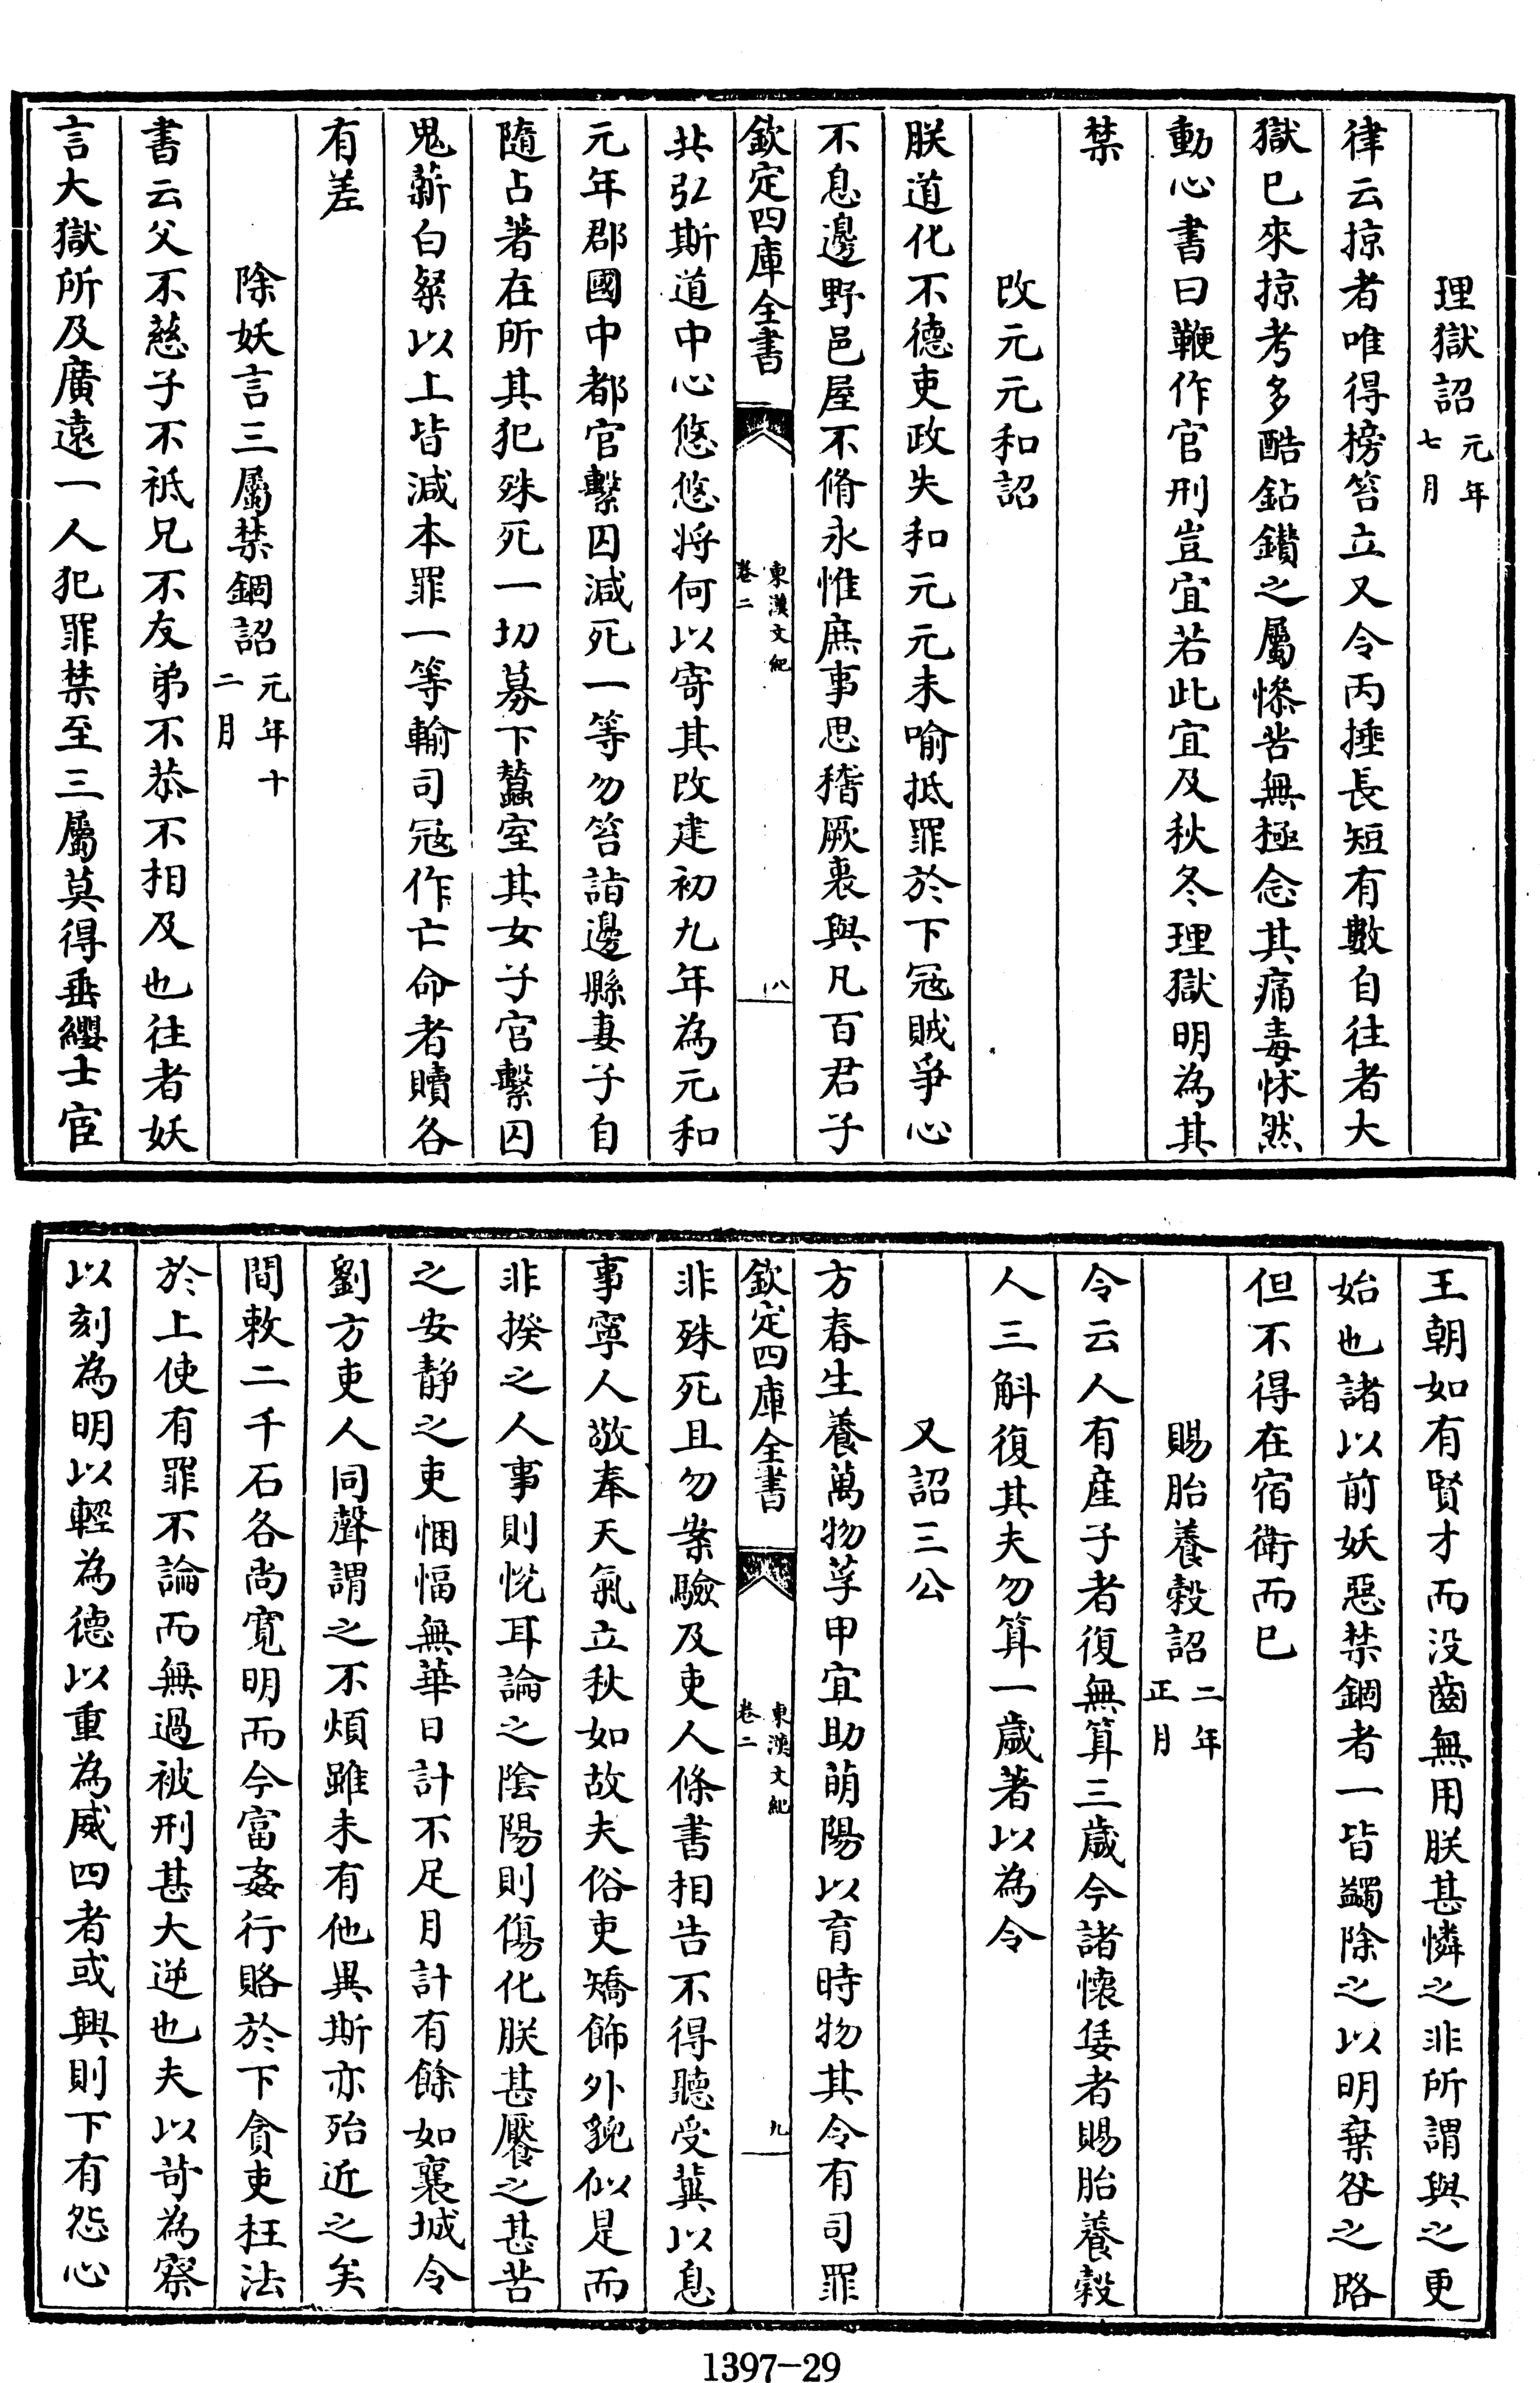 理獄詔元年七月
律云掠者唯得榜笞立又令丙捶長短有數自往者大
獄已來掠考多酷鉆鑽之屬慘苦無極念其痛毒怵然
動心書曰鞭作官刑豈宜若此宜及秋冬理獄明為其
禁
改元元和詔
朕道化不德吏政失和元元未喻抵罪於下冦賊爭心
不息邊野邑屋不脩永惟庶事思稽厥衷與凡百君子
欽定四庫全書 東漢文紀卷二 八
共弘斯道中心悠悠將何以寄其改建初九年為元和
元年郡國中都官繫囚減死一等勿笞詣邊縣妻子自
隨占著在所其犯殊死一切募下蠶室其女子官繫囚
鬼薪白粲以上皆減本罪一等輸司冦作亡命者贖各
有差
除妖言三屬禁錮詔元年十二月
書云父不慈子不祗兄不友弟不恭不相及也往者妖
言大獄所及廣遠一人犯罪禁至三屬莫得垂纓士宦
王朝如有賢才而没齒無用朕甚憐之非所謂與之更
始也諸以前妖惡禁錮者一皆蠲除之以明棄咎之路
但不得在宿衛而已
賜胎養糓詔二年正月
令云人有産子者復無算三歲今諸懷㛂者賜胎養糓
人三斛復其夫勿算一歲著以為令
又詔三公
方春生養萬物莩甲宜助萌陽以育時物其令有司罪
欽定四庫全書 東漢文紀卷二 九
非殊死且勿案驗及吏人條書相告不得聽受冀以息
事寧人敬奉天氣立秋如故夫俗吏矯飾外貌似是而
非揆之人事則悅耳論之陰陽則傷化朕甚饜之甚苦
之安静之吏悃愊無華日計不足月計有餘如襄城令
劉方吏人同聲謂之不煩雖未有他異斯亦殆近之矣
間敕二千石各尚寛明而今富姦行賂於下貪吏枉法
於上使有罪不論而無過被刑甚大逆也夫以苛為察
以刻為明以輕為德以重為威四者或興則下有怨心
1397-29